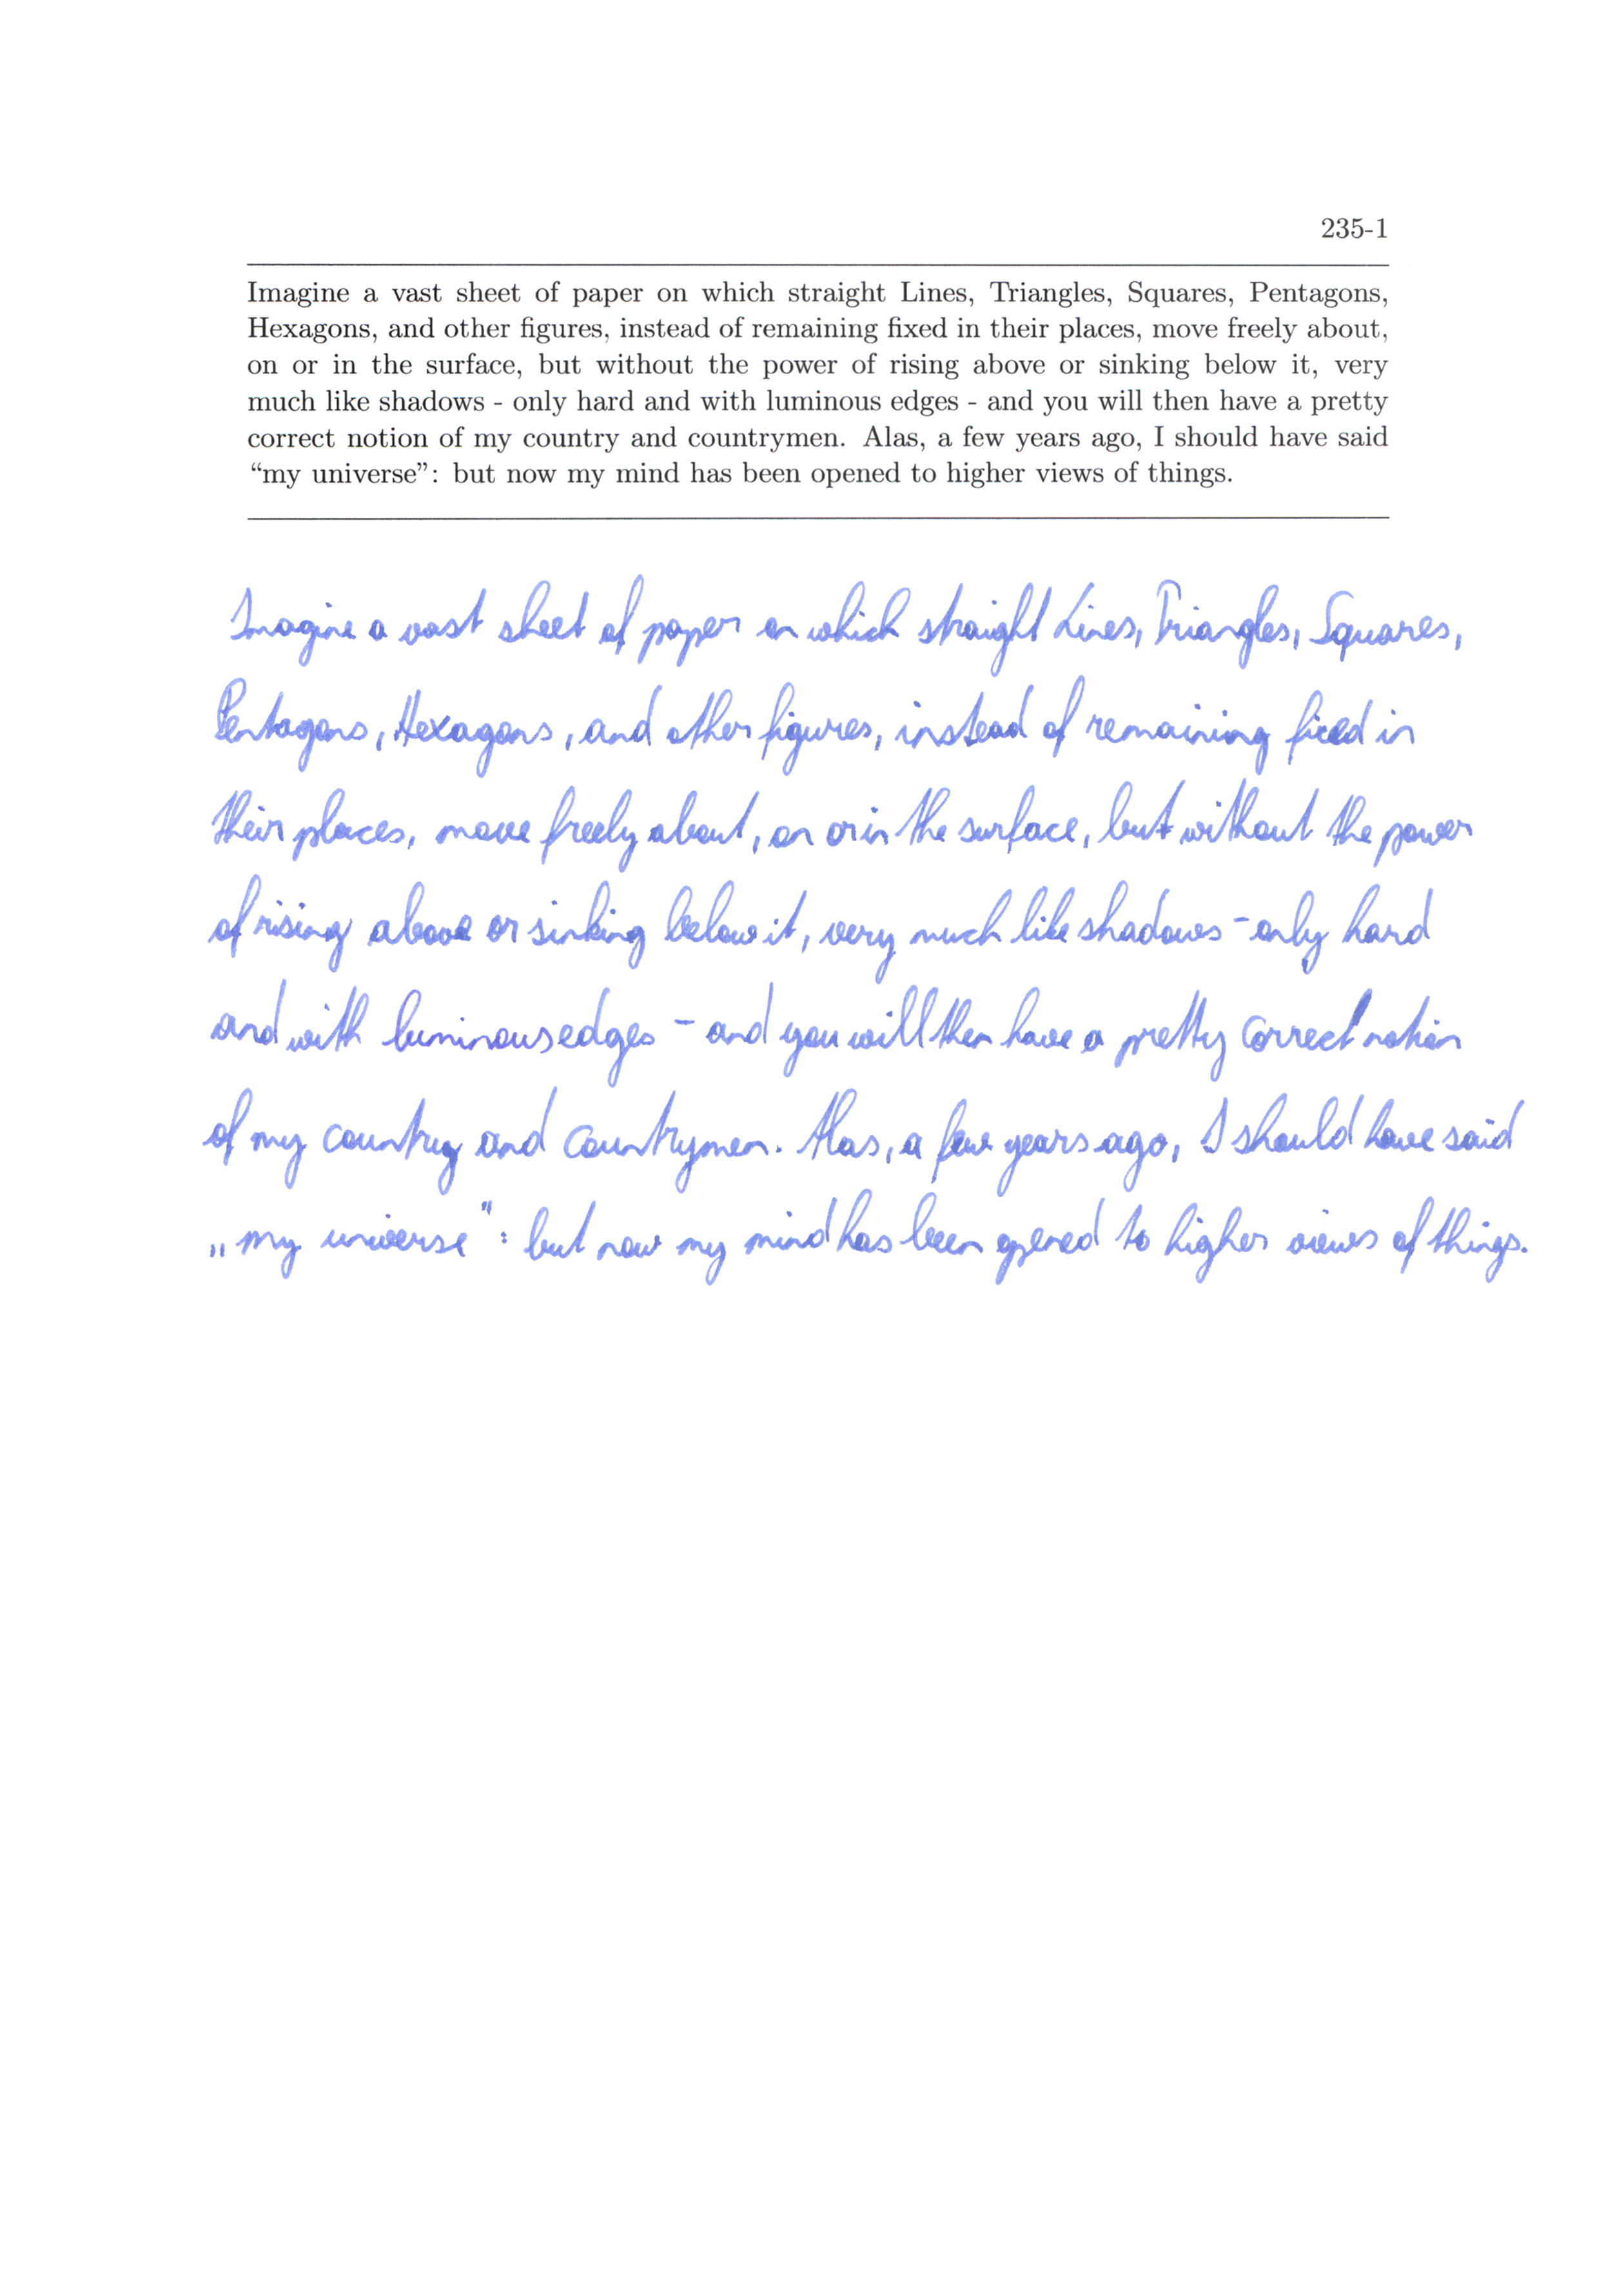 235-1
Imagine a vast sheet of paper on which straight Lines, Triangles, Squares, Pentagons,
Hexagons, and other figures, instead of remaining fixed in their places, move freely about,
on or in the surface, but without the power of rising above or sinking below it, very
much like shadows - only hard and with luminous edges - and you will then have a pretty
correct notion of my country and countrymen. Alas, a few years ago, I should have said
“my universe”: but now my mind has been opened to higher views of things.
Imagine a vast sheet of paper on which straight Lines, Triangles, Squares,
Pentagons, Hexagons, and other figures, instead of remaining fixed in
their places, move freely about, on or in the surface, but without the power
of rising above or sinking below it, very much like shadows - only hard
and with luminous edges - and you will then have a pretty correct notion
of my country and countrymen. Alas, a few years ago, I should have said
„my universe”: but now my mind has been opened to higher views of things.